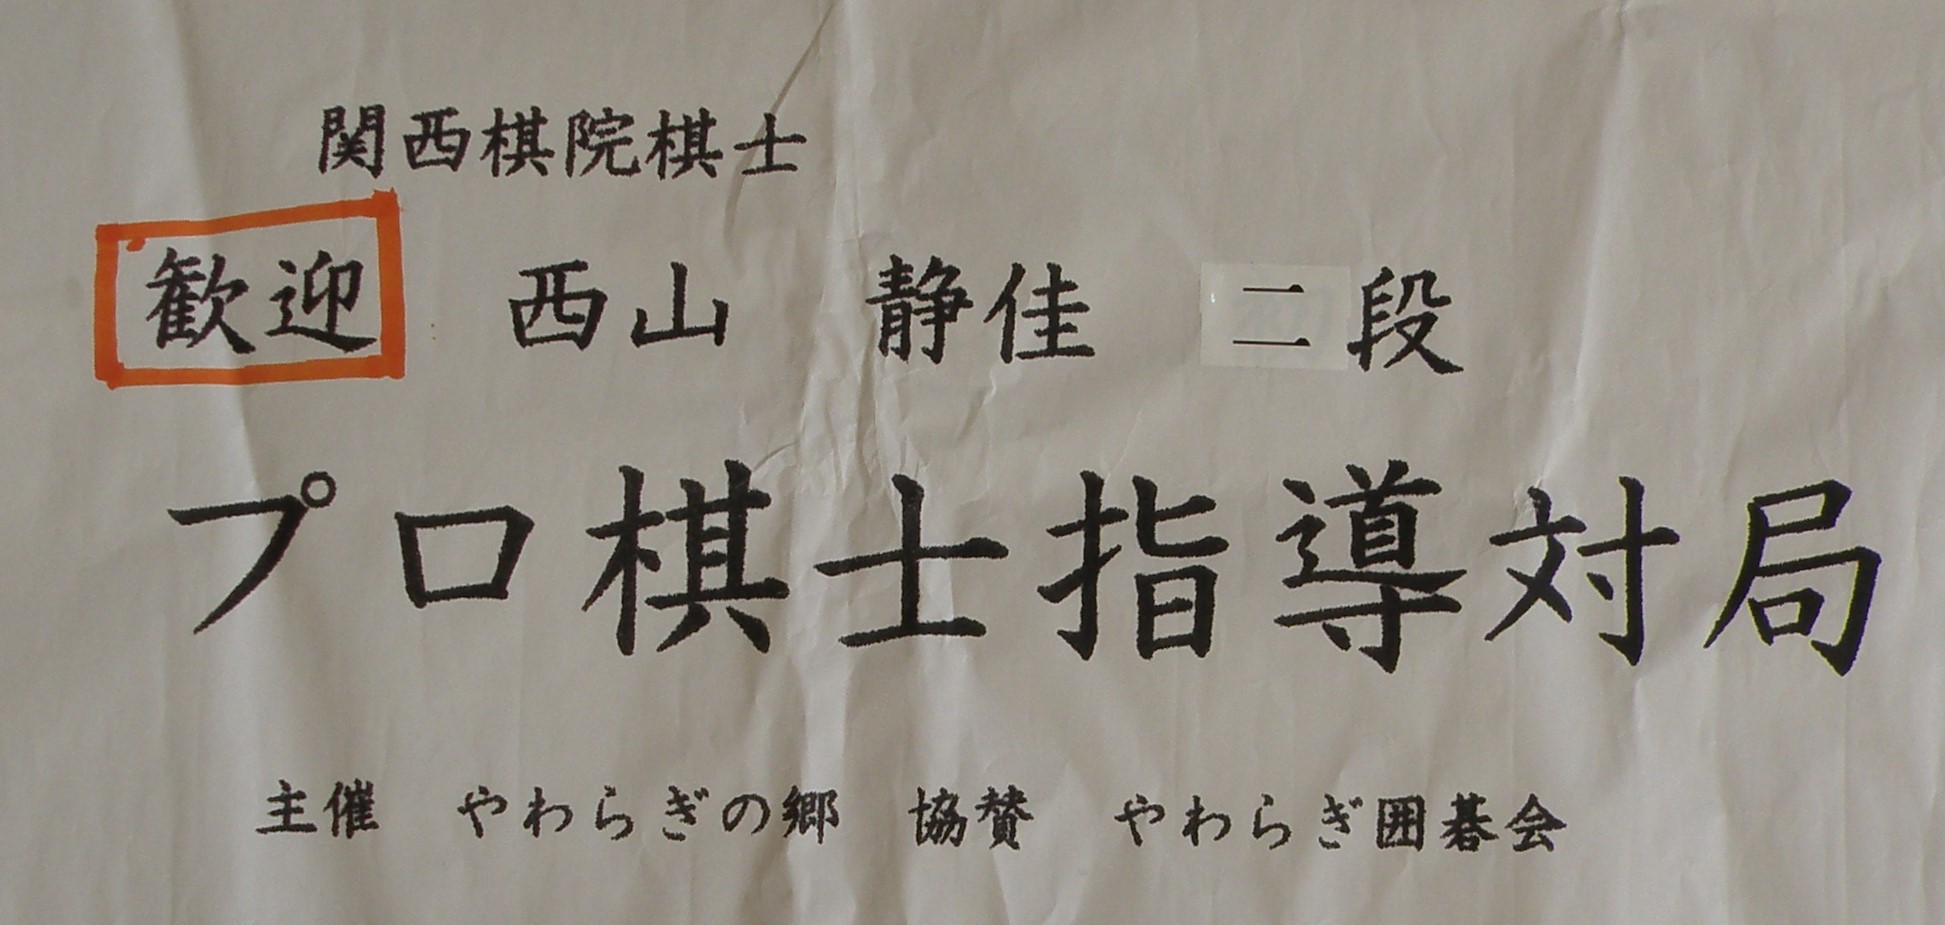 関西棋院棋士
歓迎　西山　静佳　二段
プロ棋士指導対局
主催　やわらぎの郷　協賛　やわらぎ囲碁会